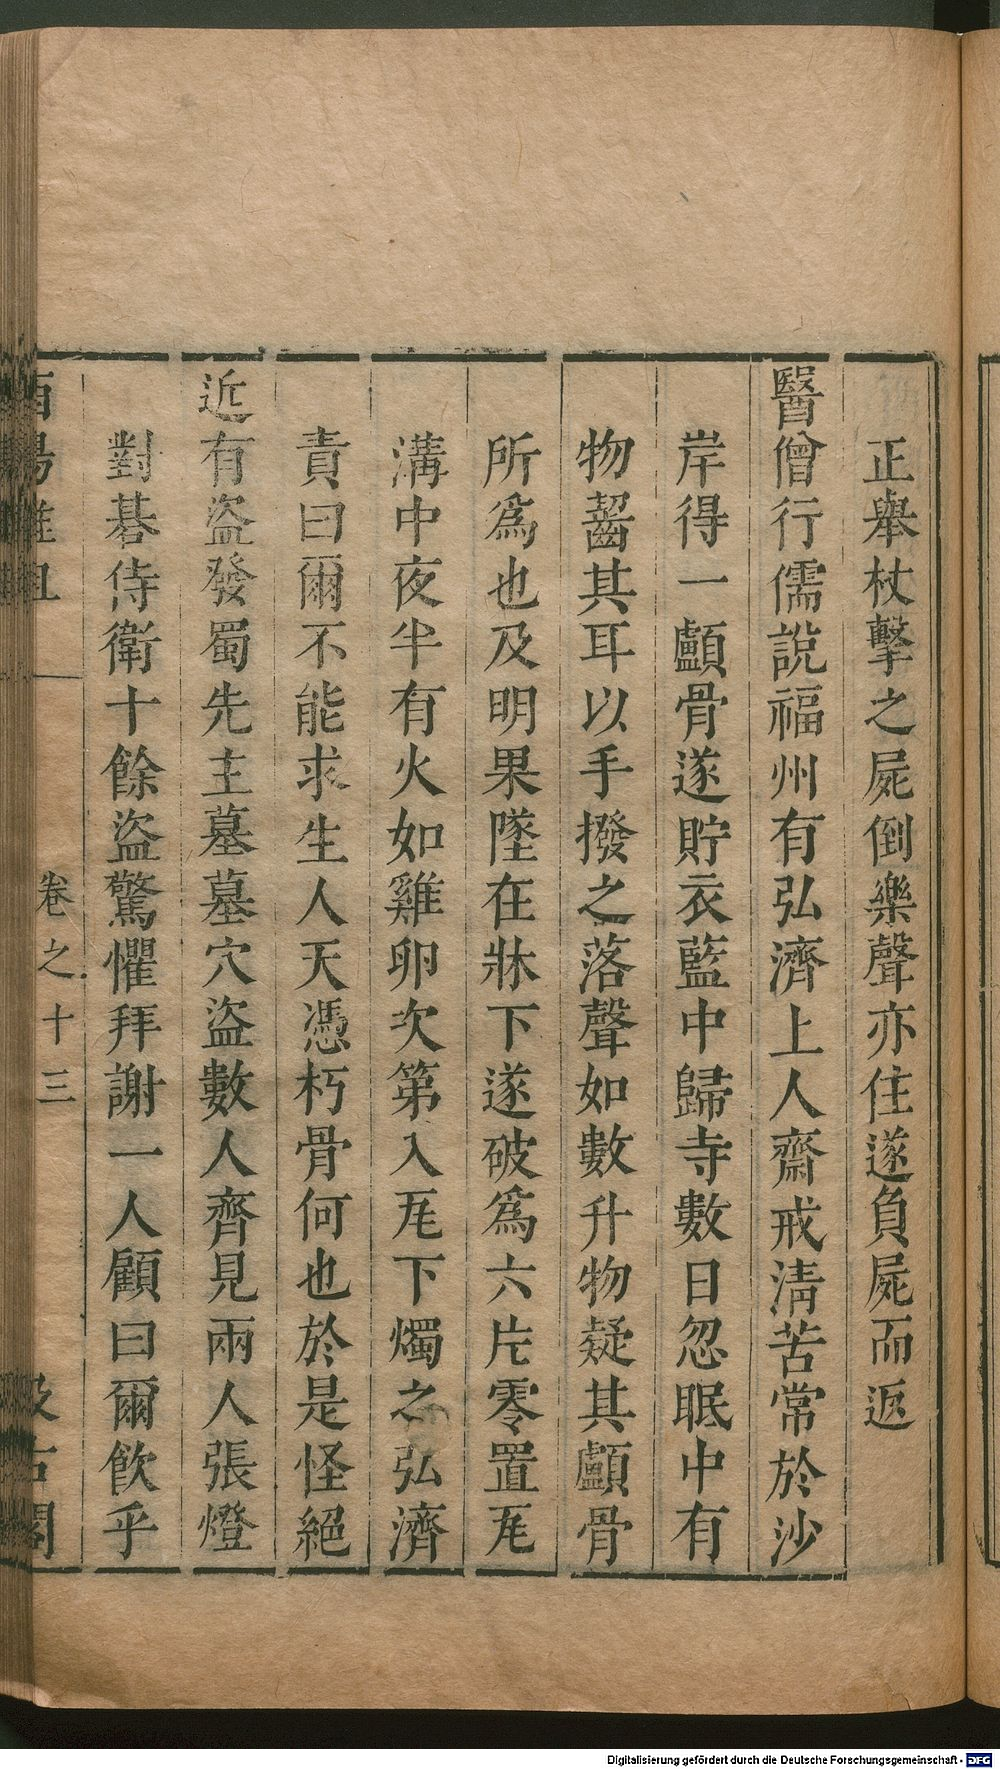 正舉杖擊之屍倒樂聲亦住遂負屍而返
醫僧行儒說福州有弘濟上人齋戒淸苦常於沙
岸得一顱骨遂貯衣藍中歸寺數日忽眠中有
物齧其耳以手撥之落聲如數升物疑其顱骨
所爲也及明果墜在牀下遂破爲六片零置瓦
溝中夜半有火如雞卵次第入瓦下燭之弘濟
責曰爾不能求生人天憑朽骨何也於是怪絕
近有盜發蜀先主墓墓穴盜數人齊見兩人張燈
對棊侍衛十餘盜驚懼拜謝一人顧曰爾飮乎
酉陽雜俎 卷之十三 汲古閣
Digitalisierung gefördert durch die Deutsche Forschungsgemeinschaft - DFG